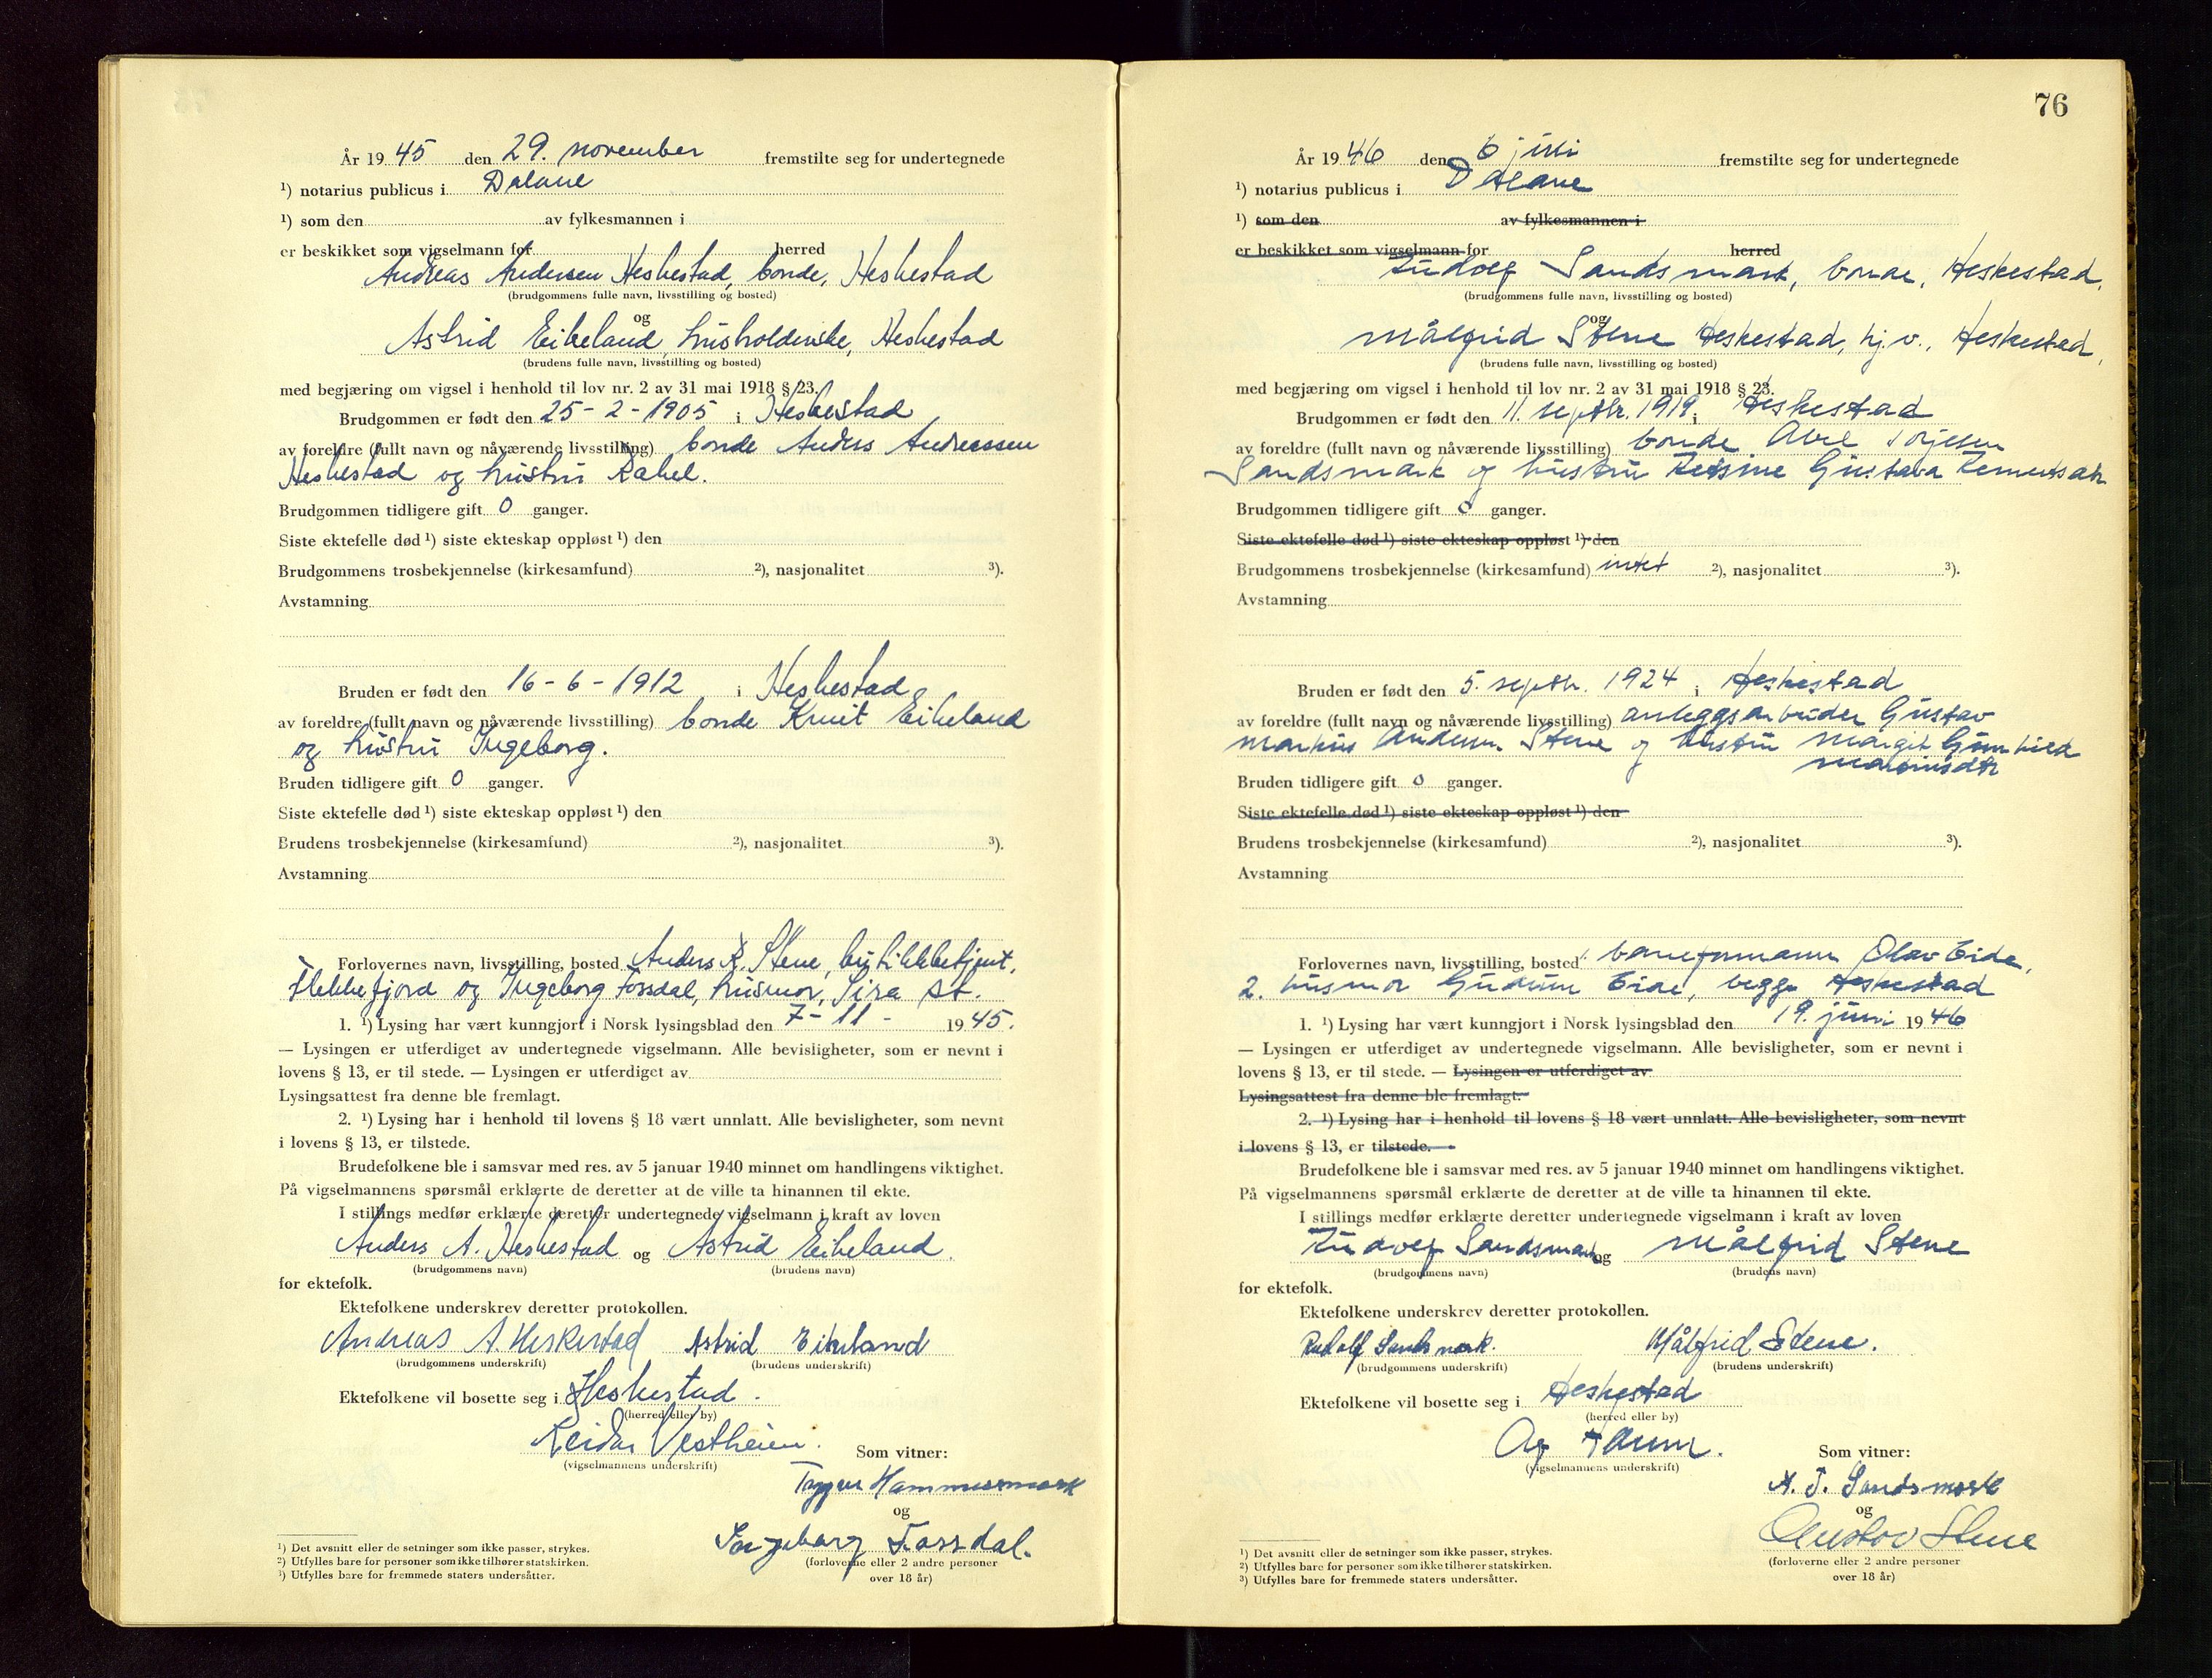 År 1945 den 29. november fremstilte seg for undertegnede
¹) notarius publicus i Dalane
¹) som den av fylkesmannen i
er beskikket som vigselmann for herred
Andreas Andersen Heskestad, bonde, Heskestad
(brudgommens fulle navn, livsstilling og bosted)
og
Astrid Eikeland, husholderske, Heskestad
(brudens fulle navn, livsstilling og bosted)
med begjæring om vigsel i henhold til lov nr. 2 av 31 mai 1918 § 23.
Brudgommen er født den 25-2-1905 i Heskestad
av foreldre (fullt navn og nåværende livsstilling) bonde Anders Andreassen
Heskestad og hustru Rakel.
Brudgommen tidligere gift 0 ganger.
Siste ektefelle død ¹) siste ekteskap oppløst ¹) den
Brudgommens trosbekjennelse (kirkesamfund) ²), nasjonalitet ³).
Avstamning
Bruden er født den 16-6-1912 i Heskestad
av foreldre (fullt navn og nåværende livsstilling) bonde Knut Eikeland
og hustru Ingeborg.
Bruden tidligere gift 0 ganger.
Siste ektefelle død ¹) siste ekteskap oppløst ¹) den
Brudens trosbekjennelse (kirkesamfund) ²), nasjonalitet ³).
Avstamning
Forlovernes navn, livsstilling, bosted Anders R. Stene, butikkbetjent,
Flekkefjord og Ingeborg Fossdal, husmor, Sira st.
1. ¹) Lysing har vært kunngjort i Norsk lysingsblad den 7-11- 1945.
— Lysingen er utferdiget av undertegnede vigselmann. Alle bevisligheter, som er nevnt i
lovens § 13, er til stede. — Lysingen er utferdiget av
Lysingsattest fra denne ble fremlagt.
2. ¹) Lysing har i henhold til lovens § 18 vært unnlatt. Alle bevisligheter, som nevnt
i lovens § 13, er tilstede.
Brudefolkene ble i samsvar med res. av 5 januar 1940 minnet om handlingens viktighet.
På vigselmannens spørsmål erklærte de deretter at de ville ta hinannen til ekte.
I stillings medfør erklærte deretter undertegnede vigselmann i kraft av loven
Anders A. Heskestad og Astrid Eikeland.
(brudgommens navn) (brudens navn)
for ektefolk.
Ektefolkene underskrev deretter protokollen.
Andreas A. Heskestad Astrid Eikeland
(brudgommens underskrift) (brudens underskrift)
Ektefolkene vil bosette seg i Heskestad.
(herred eller by)
Reidar Vestheim.
(vigselmannens underskrift)
Som vitner:
Trygve Hammersmark
og
Ingeborg Fossdal.
(forloverne eller 2 andre personer
over 18 år)
¹) Det avsnitt eller de setninger som ikke passer, strykes.
²) Utfylles bare for personer som ikke tilhører statskirken.
³) Utfylles bare for fremmede staters undersåtter.
76
År 1946 den 6 juli fremstilte seg for undertegnede
¹) notarius publicus i Dalane
¹) som den av fylkesmannen i
er beskikket som vigselmann for herred
Rudolf Sandsmark, bonde, Heskestad,
(brudgommens fulle navn, livsstilling og bosted)
og
Målfrid Stene Heskestad, hj.v., Heskestad,
(brudens fulle navn, livsstilling og bosted)
med begjæring om vigsel i henhold til lov nr. 2 av 31 mai 1918 § 23.
Brudgommen er født den 11. septbr. 1919 i Heskestad
av foreldre (fullt navn og nåværende livsstilling) bonde Abel Torjesen
Sandsmark og hustru Gustava
Brudgommen tidligere gift 0 ganger.
Siste ektefelle død ¹) siste ekteskap oppløst ¹) den
Brudgommens trosbekjennelse (kirkesamfund) intet ²), nasjonalitet ³).
Avstamning
Bruden er født den 5. septbr. 1924 i Heskestad
av foreldre (fullt navn og nåværende livsstilling) anleggsarbeider Gustav
Markus Andersen Stene og hustru Margit Gunhild
Markusdtr
Bruden tidligere gift 0 ganger.
Siste ektefelle død ¹) siste ekteskap oppløst ¹) den
Brudens trosbekjennelse (kirkesamfund) ²), nasjonalitet ³).
Avstamning
Forlovernes navn, livsstilling, bosted: baneformann Olav Eide,
2. husmor Gudrun Eide, begge Heskestad
1. ¹) Lysing har vært kunngjort i Norsk lysingsblad den 19. juni 1946
— Lysingen er utferdiget av undertegnede vigselmann. Alle bevisligheter, som er nevnt i
lovens § 13, er til stede. — Lysingen er utferdiget av
Lysingsattest fra denne ble fremlagt.
2. ¹) Lysing har i henhold til lovens § 18 vært unnlatt. Alle bevisligheter, som nevnt
i lovens § 13, er tilstede.
Brudefolkene ble i samsvar med res. av 5 januar 1940 minnet om handlingens viktighet.
På vigselmannens spørsmål erklærte de deretter at de ville ta hinannen til ekte.
I stillings medfør erklærte deretter undertegnede vigselmann i kraft av loven
Rudolf Sandsmark og Målfrid Stene
(brudgommens navn) (brudens navn)
for ektefolk.
Ektefolkene underskrev deretter protokollen.
Rudolf Sandsmark. Målfrid Stene.
(brudgommens underskrift) (brudens underskrift)
Ektefolkene vil bosette seg i Heskestad
(herred eller by)
(vigselmannens underskrift)
Som vitner:
A. T. Sandsmark
og
Gustav Stene
(forloverne eller 2 andre personer
over 18 år)
¹) Det avsnitt eller de setninger som ikke passer, strykes.
²) Utfylles bare for personer som ikke tilhører statskirken.
³) Utfylles bare for fremmede staters undersåtter.